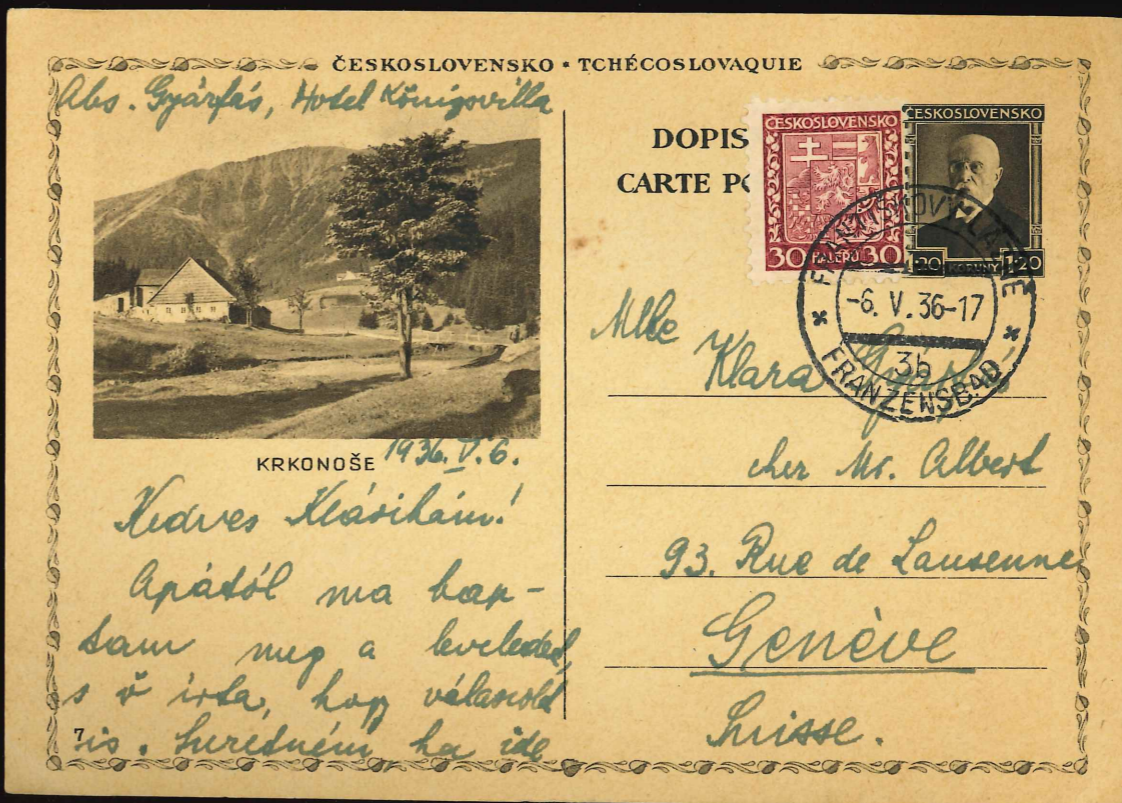 ČESKOSLOVENSKO • TCHÉCOSLOVAQUIE
Abs. Gyárfás, Hotel Königsvilla
DOPIS
CARTE PO
ČESKOSLOVENSKO
30 HALÉŘŮ 30
ČESKOSLOVENSKO
1·20 KORUNY 1·20
FRANTIŠKOVY LÁZNĚ
-6. V. 36-17
3b
FRANZENSBAD
KRKONOŠE
1936. V. 6.
Kedves Klárikám!
Apától ma kap-
tam meg a leveledet,
s ő írta, hogy válaszolt
is. Szeretném, ha ide
7
Mlle
Klara Gyárfás
cher Mr. Albert
93. Rue de Lausenne
Genève
Suisse.